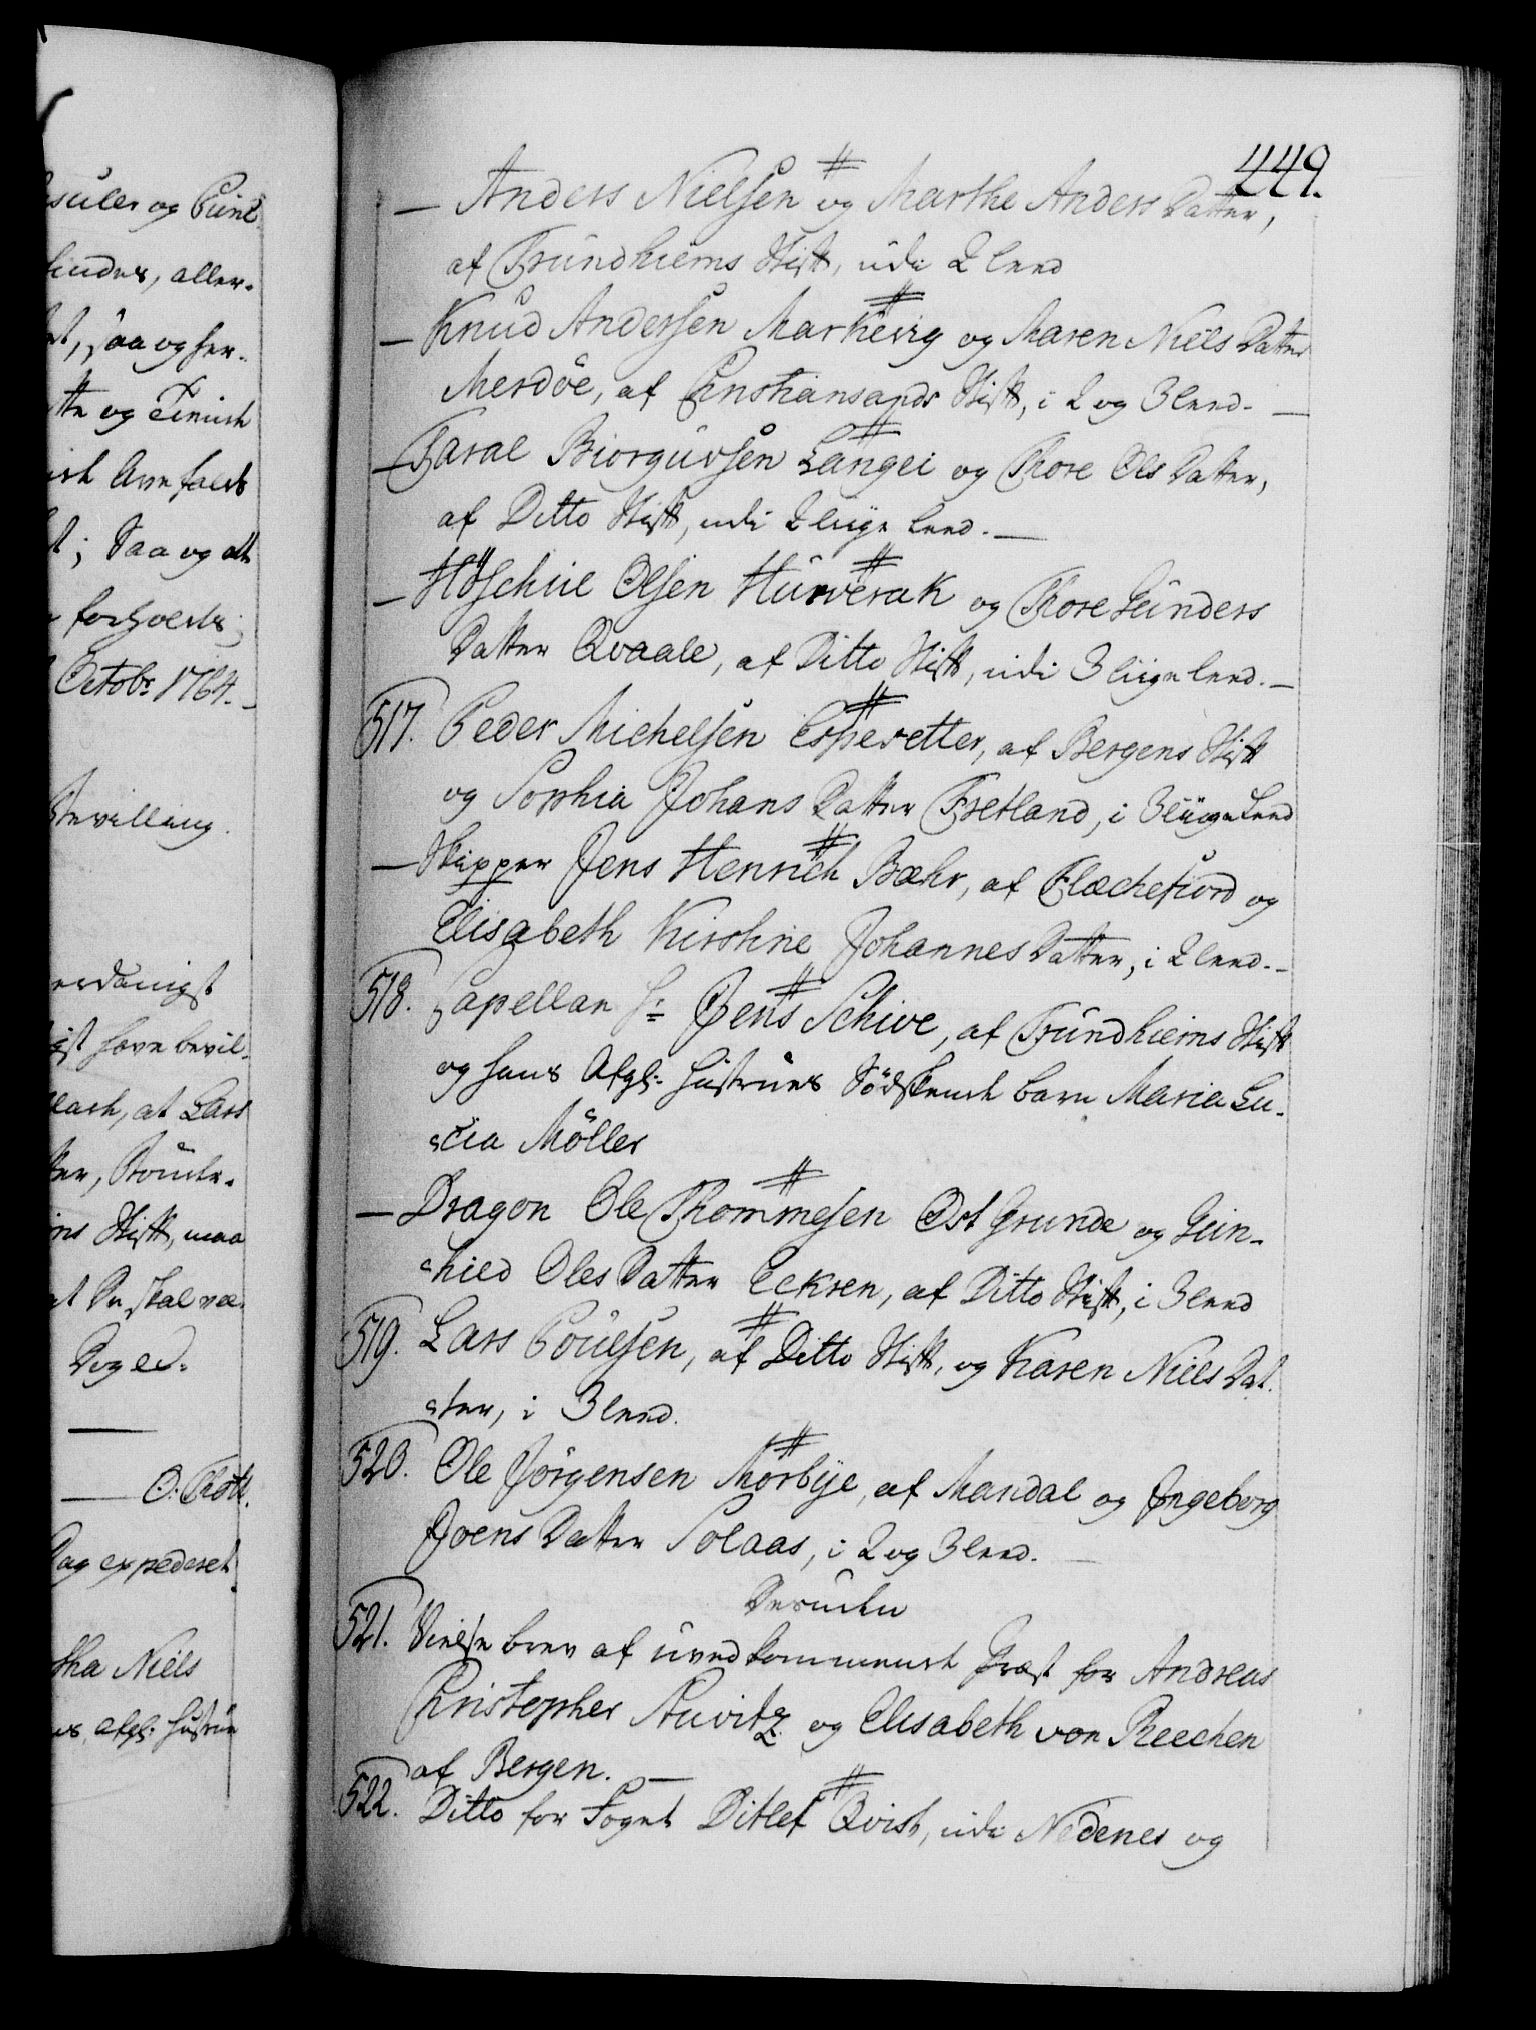 sules og Punc
findes, aller-
at, saa og for-
og
; Saa og at
forholdes;
Octobr 1764.
Bevilling.
erdanigst
igst have bevil-
at Lars
Stift, maa
at De skal
O. Thott.
Dag expederet
tha Niels
afgl: Hustrue
449.
— Anders Nielsen og Marthe Anders Datter,
af Trundhiems Stift, udi 2 Leed
— Knud Andersen Markevig og Maren Niels Datter
Merdöe, af Christiansands Stift, i 2 og 3 Leed. —
— Taral Biorguvsen Langei og Thore Ols Datter,
af Ditto Stift, udi 2 liige Leed. —
— Höschul Olsen Hurverak og Thore Gunders
Datter Qvaale, af Ditto Stift, udi 3 liige Leed. —
517. Peder Michelsen Espevetter, af Bergens Stift
og Sophia Johans Datter Fretland, i 3 liige Leed
— Skipper Jens Henrich Bæhr, af Flæchefiord og
Elisabeth Kirstine Johannes Datter, i 2 Leed. –
518. Capellan Hr: Jens Schive, af Trundhiems Stift
og hans Afgl: Hustrues Södskende barn Maria Lu-
cia Möller
— Dragon Ole Thommesen Ost Grunde og Gun-
hild Oles Datter Ecksen, af Ditto Stift, i 3 Leed
519. Lars Poulsen, af Ditto Stift, og Karen Niels Dat-
ter, i 3 Leed.
520. Ole Jörgensen Mörbye, af Mandal og Ingeborg
Joens Datter Solaas, i 2 og 3 Leed. —
Desuden
521. Vielse brev af uvedkommende Præst for Andreas
Christopher Auvitz og Elisabeth von Reechen
af Bergen. —
522. Ditto for Foget Ditlef Qvist, udi Nedenes og